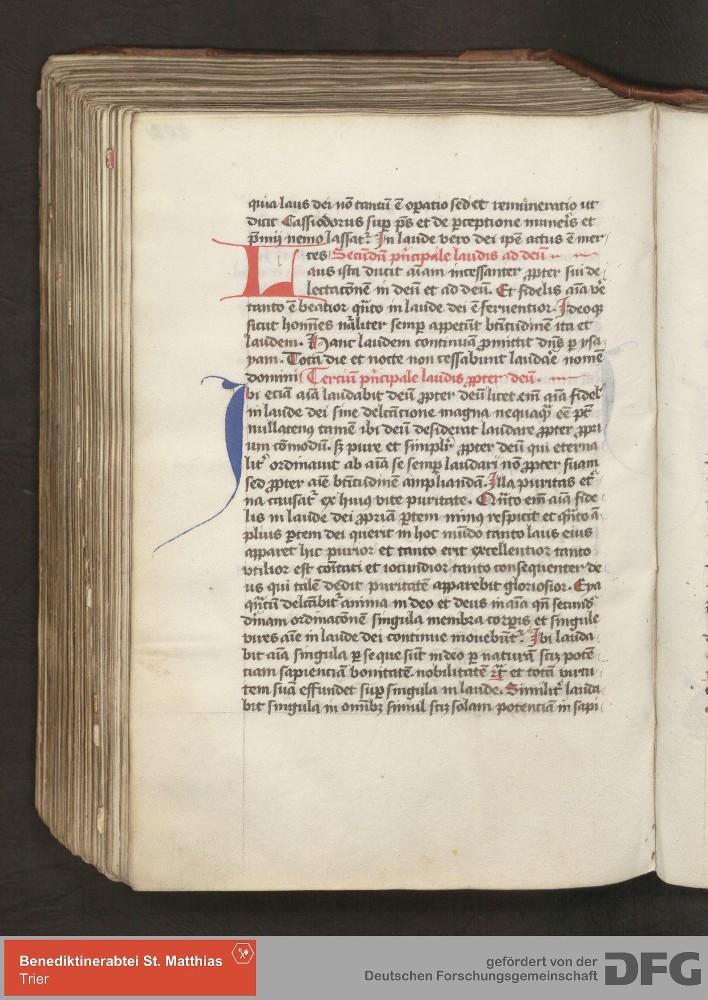 quia laus dei nō tantū ē oꝑatio sed et remūneratio ut
dicit Cassiodorus sup̄ ps̄ et de ꝑceptione muneris et
p̄mij nemo lassat᷑. In laude vero dei ip̄e actus ē mer
ces Secundū p̄ncipale laudis ad deū
Laus ista ducit aīam incessanter ꝓpter sui de
lectacōnem in deū et ad deū. Et fidelis aīa vē
tanto ē beatior qn̄to in laude dei ē feruentior. Ideoqꝫ
sicut homīnes nāliter semꝑ appetūt btītudinem ita et
laudem. Hanc laudem continuā ꝓmittit dn̄s ꝑ ysa
yam. Tota die et nocte non cessabunt laudar̄e nomē
domini Terciū p̄ncipale laudis ꝓpter deū.
Ibi eciam aīa laudabit deū ꝓpter deū licet em̄ aīa fidel̄
in laude dei sine delc̄ntione magna nequaqȝ eē pt̄
nullatenus tamē ibi deū desiderat laudare ꝓpter ꝓpri
um cōmodū. sꝫ pure et simplir̄ ꝓpter deū qui eterna
lit᷑ ordinauit ab aīa se semꝑ laudari nō ꝓpter suam
sed ꝓpter aīe btītudinem ampliandā. Illa puritas et᷑
na causat᷑ ex huius vite puritate. Qn̄to em̄ aīa fide
lis in laude dei ꝓpriam ꝑtem minus respicit et qn̄to ā
plius ꝑtem dei querit in hoc mūdo tanto laus eius
apparet hic purior et tanto erit excellentior tanto
vtilior est cōntati et iocundior tanto consequenter de
us qui talē dedit puritatē apparebit gloriosior. Eya
qn̄tū delc̄abit᷑ anima in deo et deus in aīa qn̄ secundū
diuīnam ordinacōnem singula membra corꝑis et singule
vires aīe in laude dei continue mouebūt᷑. Ibi lauda
bit aīa singula ꝑ se que sūt in deo ꝑ naturā scꝫ potē
ciam sapienciā bonitatē nobilitatē ⁊c̄ et totā virtu
tem suā effundet sup̄ singula in laude. Similit᷑ lauda
bit singula in omībꝫ simul scꝫ solam potenciā in sapi
Benediktinerabtei St. Matthias
Trier
gefördert von der
Deutschen Forschungsgemeinschaft
DFG